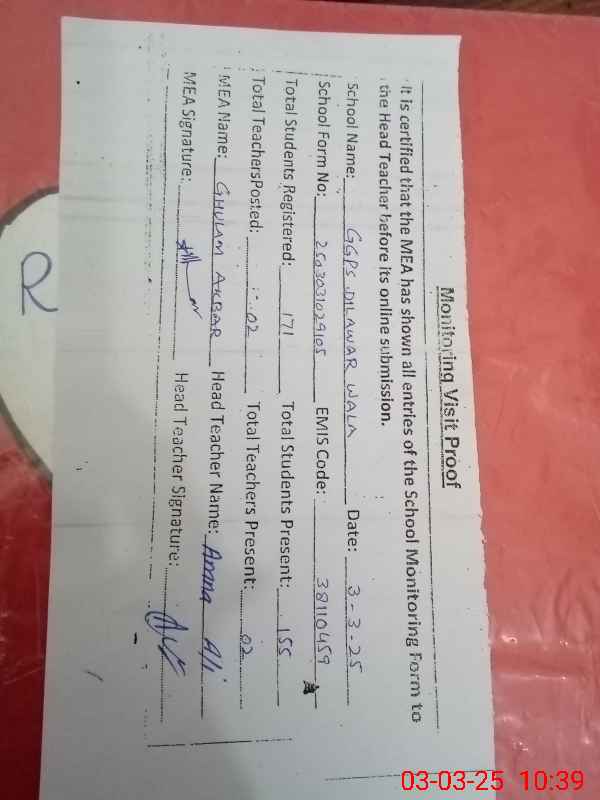 Monitoring Visit Proof
It is certified that the MEA has shown all entries of the School Monitoring Form to
the Head Teacher before its online submission.
School Name: GGPS DILAWAR WALA Date: 3-3-25
School Form No: 2503031029105 EMIS Code: 38110459
Total Students Registered: 171 Total Students Present: 155
Total TeachersPosted: 02 Total Teachers Present: 02
MEA Name: GHULAM AKBAR Head Teacher Name: Amna Ali
MEA Signature: Head Teacher Signature:
2
03-03-25 10:39